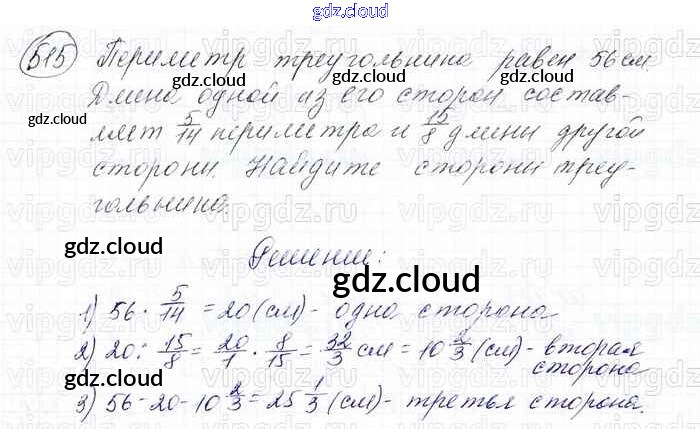 gdz.cloud
515 Периметр треугольника равен 56 см.
Длина одной из его сторон состав-
ляет 5/14 периметра и 15/8 длины другой
стороны. Найдите стороны треу-
гольника.
Решение:
1) 56 · 5/14 = 20 (см) - одна сторона
2) 20 : 15/8 = 20/1 · 8/15 = 32/3 см = 10 2/3 (см) - вторая
сторона
3) 56 - 20 - 10 2/3 = 25 1/3 (см) - третья сторона.
gdz.cloud
gdz.cloud
gdz.cloud
gdz.cloud
gdz.cloud
gdz.cloud
gdz.cloud
vipgdz.ru